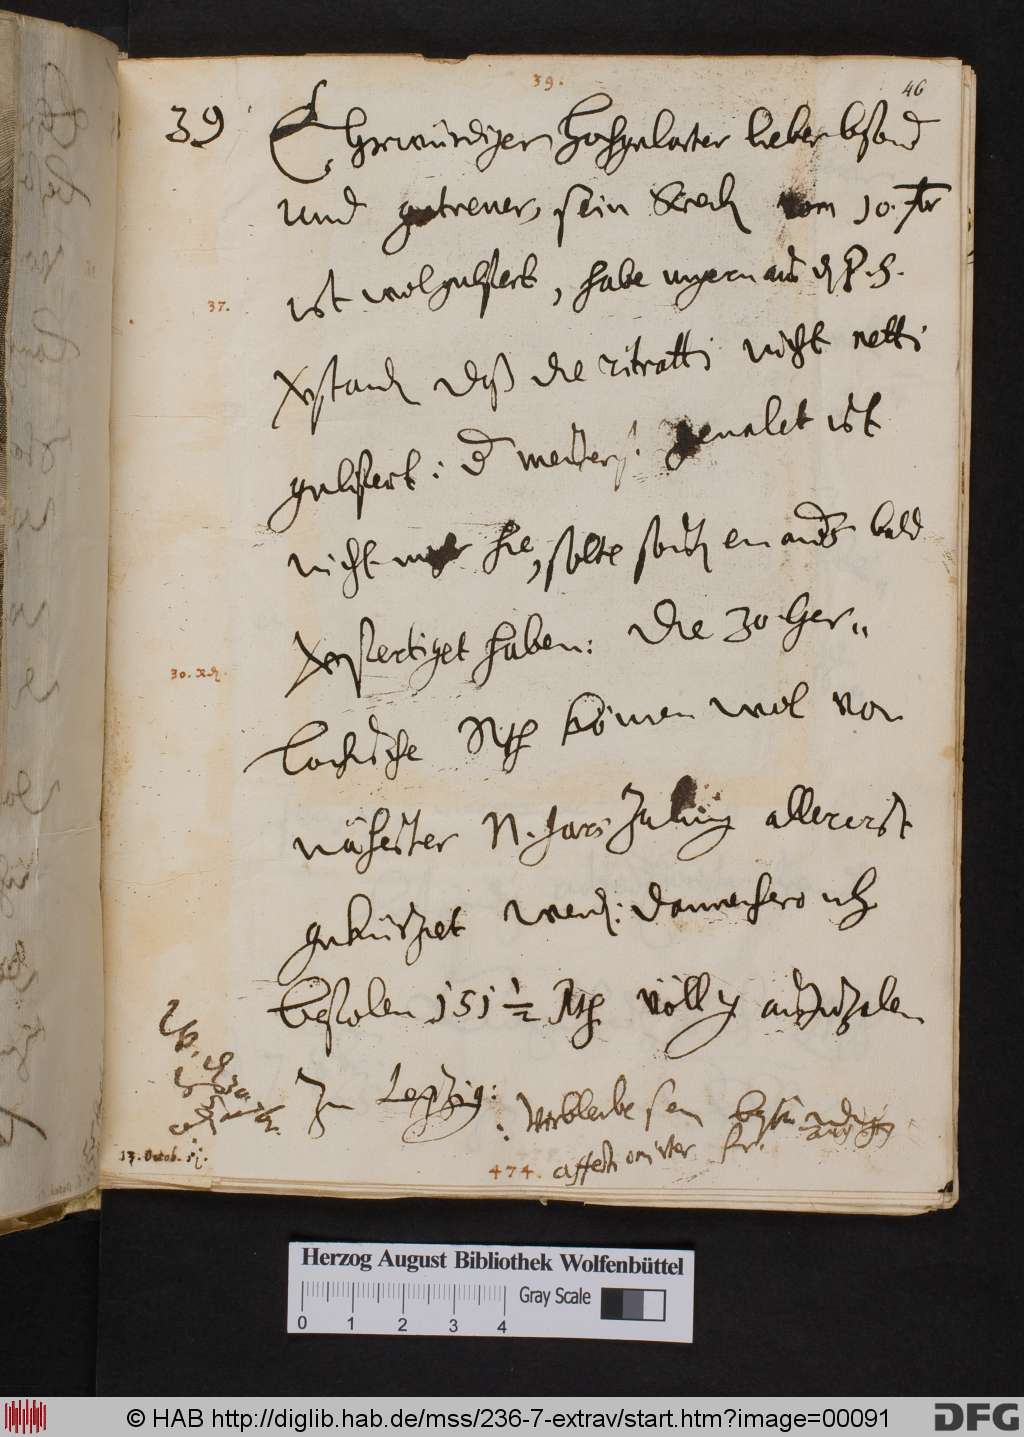 39.
46
39
Ehrwürdiger Hochgelarter lieber bsond
und getrewer, sein Schreib vom 10. 7br
37.
ist wol gelifert, habe ungern aus
verstanden daß die ritratti nicht netti
gelifert: d meister gemalet ist
nicht mehr hie, solte sonst ein anders bald
verfertiget haben: Die 30 Ger„
30.
lachische Rth können wol von
nähester N. Jars Zalung allererst
gekürtzet werden: dannenhero ich
befolen 151 1/2 Rth völlig außzuzalen
Zu Leipzig: Verbleibe sein
474. affectionirter
13. Octob.
Herzog August Bibliothek Wolfenbüttel
Gray Scale
0 1 2 3 4
© HAB http://diglib.hab.de/mss/236-7-extrav/start.htm?image=00091
DFG